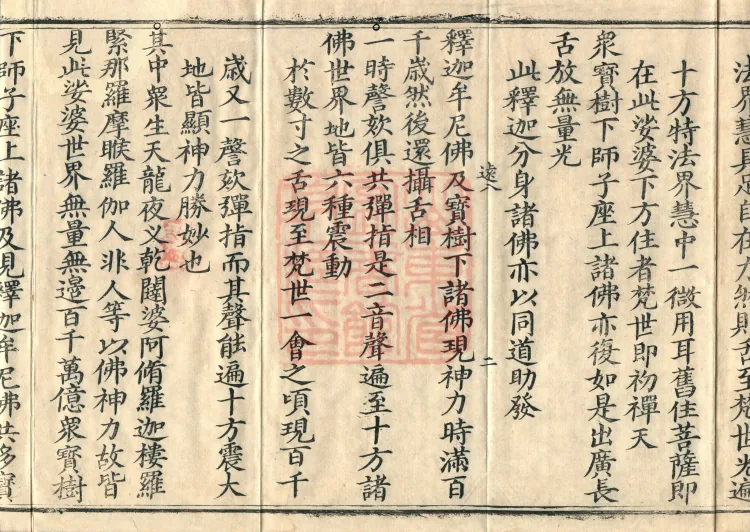 法界慧具足自在力然則舌至梵世光遍
十方特法界慧中一微用耳舊住菩薩即
在此娑婆下方住者梵世即初禪天
衆寳樹下師子座上諸佛亦復如是出廣長
舌放無量光
此釋迦分身諸佛亦以同道助發
遠八 二
釋迦牟尼佛及寳樹下諸佛現神力時滿百
千歳然後還攝舌相
一時謦欬俱共彈指是二音聲遍至十方諸
佛世界地皆六種震動
於數寸之舌現至梵世一會之頃現百千
歳又一謦欬彈指而其聲能遍十方震大
地皆顯神力勝妙也
其中衆生天龍夜叉乾闥婆阿脩羅迦樓羅
緊那羅摩睺羅伽人非人等以佛神力故皆
見此娑婆世界無量無邊百千萬億衆寳樹
下師子座上諸佛及見釋迦牟尼佛共多寳